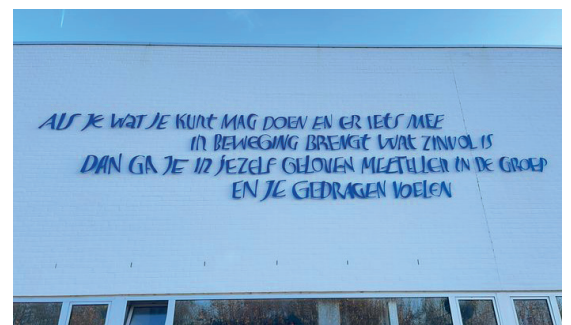 ALS JE WAT JE KUNT MAG DOEN EN ER IETS MEE
IN BEWEGING BRENGT WAT ZINVOL IS
DAN GA JE IN JEZELF GELOVEN MEETELLEN IN DE GROEP
EN JE GEDRAGEN VOELEN